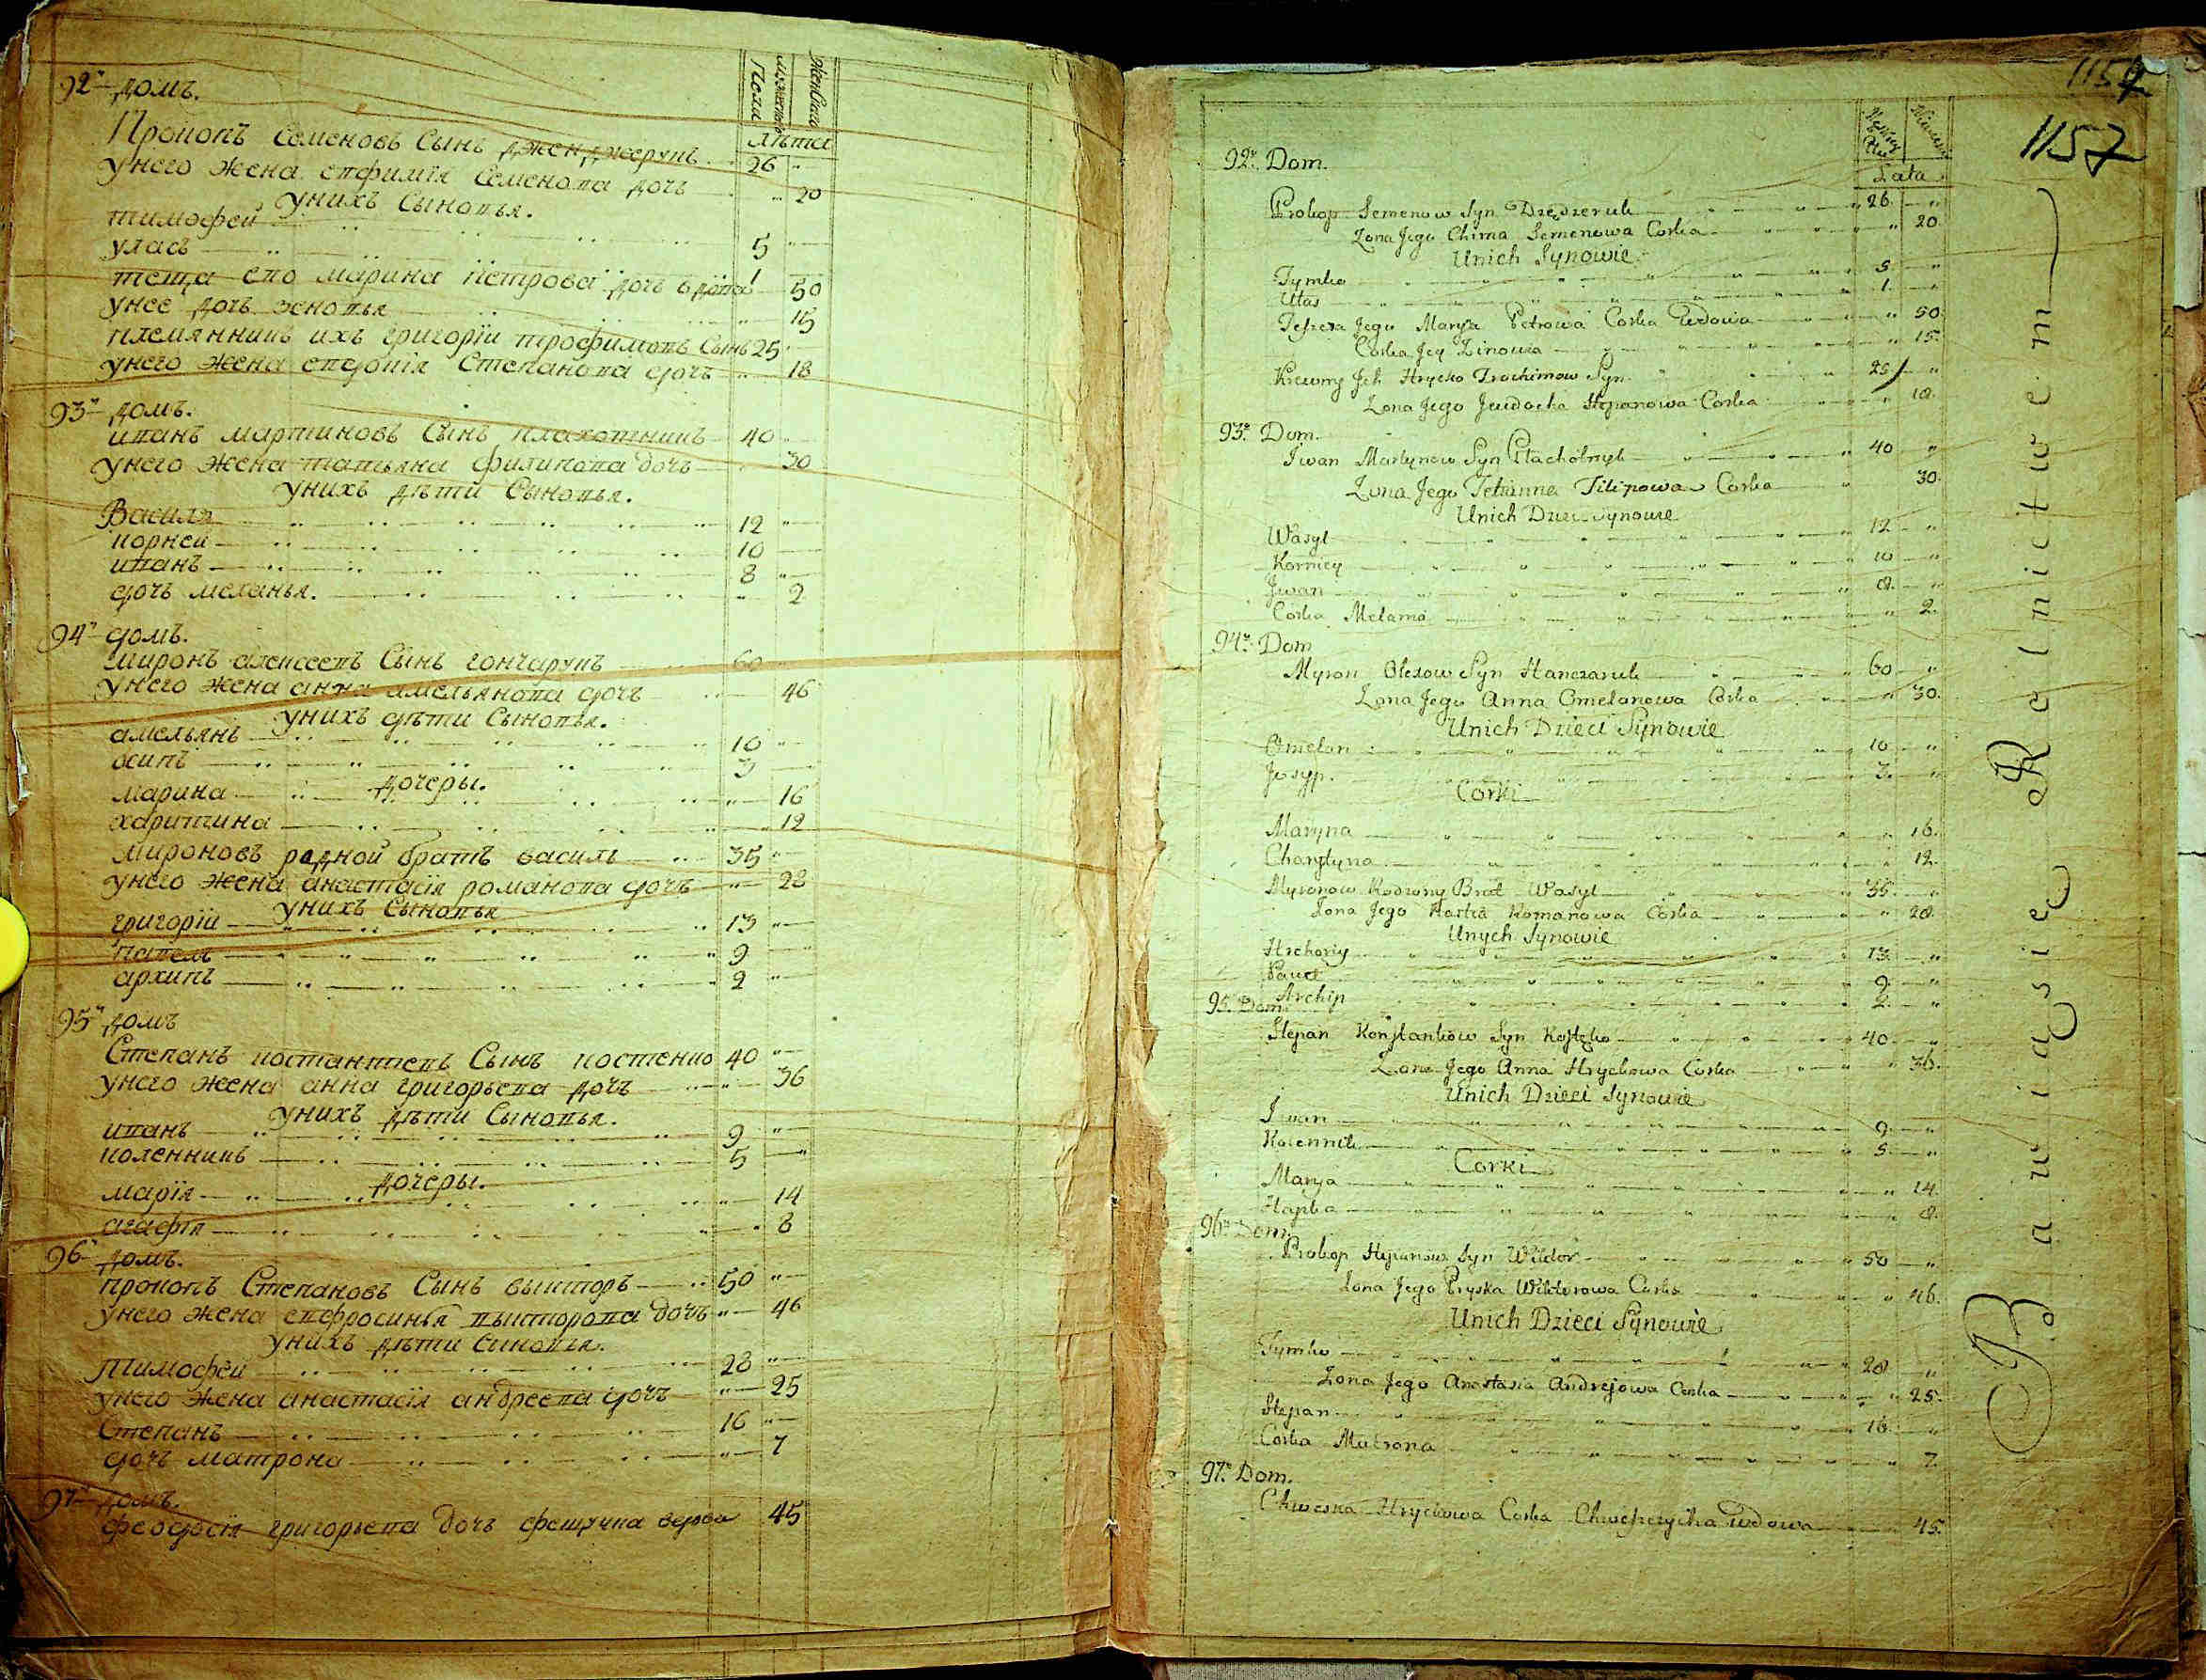 Мужеска
Полу
Женска
лѣта
92й домъ.
Прокопъ Семеновъ Сынъ дженджерукъ 26 "
унего жена евфимія Семенова дочь " 20
унихъ Сыновья.
тимофей 5 "
уласъ 1
теща его марина Петрова дочь вдова 50
унее дочь зеновья " 15
племянникъ ихъ григорїи трофимовъ Сынъ 25 "
унего жена евдокія Степанова дочь " 18
93й домъ.
иванъ мартиновъ Сынъ плахотникъ 40
унего жена татьяна филипова дочь 30
унихъ дѣти Сыновья.
Василь 12 "
корней 10
иванъ 8 "
дочь меланья. " 2
94й домъ.
миронъ алексеевъ Сынъ гончарукъ 60
унего жена анна амельянова дочь 46
унихъ дѣти Сыновья.
амельянъ 10 "
осипъ 3
дочеры.
марина " 16
харитина " 12
мироновъ радной братъ василь 35 "
унего жена анастасія романова дочь " 28
унихъ Сыновья
григорїй 13 "
павелъ 9
архипъ 2 "
95й домъ
Степанъ костантиевъ Сынъ костенко 40 "
унего жена анна григорьева дочь " 36
унихъ дѣти Сыновья.
иванъ 9 "
коленникъ 5 "
дочеры.
марїя " 14
агафія " 8
96й домъ.
прокопъ Степановъ Сынъ выкторъ 50 "
унего жена евфросинья выкторова дочь " 46
унихъ дѣти Сыновья.
тимофей 28 "
унего жена анастасія андреева дочь " 25
Степанъ 16 "
дочь матрона " 7
97й домъ.
феодосія григорьева дочь вдова 45
1157
1157
Lata
92o. Dom.
Prokop Semenow Syn Dzedzeruk 26. "
Zona Jego Chima Semenowa Corka " 20.
Unich Synowie
Tymko 5. "
Ulas 1. "
Teszcza Jego Maryna Petrowa Corka Wdowa " 50.
Corka Jey Zinowia " 15.
Krewny Jch Hrycko Trochimow Syn 25 "
Zona Jego Jewdocha Stepanowa Corka " 18.
93o. Dom.
Jwan Martynow Syn Płachotnyk 40 "
Zona Jego Tetianna Filipowa Corka " 30.
Unich Dzieci Synowie
Wasyl 12 "
Korniey 10 "
Jwan 8. "
Corka Melania " 2.
94o. Dom
Myron Olexow Syn Hanczaruk 60 "
Zona Jego Anna Omelanowa Corka " 30.
Unich Dzieci Synowie
Omelan 10 "
Josyp. 3. "
Corki
Maryna " 16.
Charytyna " 12.
Myronow Rodzony Brat Wasyl 35. "
Zona Jego Nastia Romanowa Corka " 28.
Unych Synowie
Hrehoriy 13. "
Paweł 9. "
Archip 2. "
95. Dom
Stepan Konstantiow Syn Kostęko 40 "
Zona Jego Anna Hryckowa Corka " 36.
Unich Dzieci Synowie
Jwan 9. "
Kolennik 5. "
Corki
Marya " 14.
Hapka " 8.
96o. Dom
Prokop Stepanow Syn Wiktor 50 "
Zona Jego Pryska Wiktorowa Corka " 46.
Unich Dzieci Synowie
Tymko 28 "
Zona Jego Anastasia Andrejowa Corka " 25.
Stepan 16. "
Corka Matrona " 7.
97o. Dom.
Chweska Hryckowa Corka Wdowa 45.
Rolnictwem